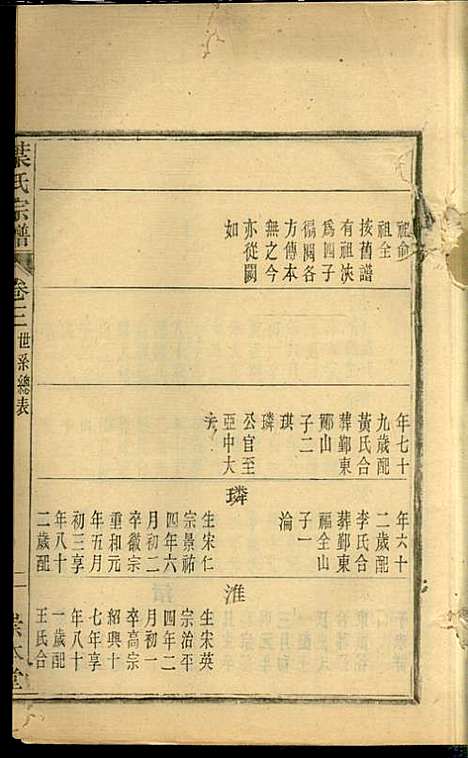 祖俞
祖全
按舊譜
有祖浹
爲四子
徧閱各
方傳本
無之今
亦從闕
如
年七十
九歲配
黃氏合
葬鄞東
鄮山
子二
琪
璘
公官至
亞中大
夫
年六十
二歲配
李氏合
葬鄞東
福全山
子一
淪
璘
生宋仁
宗景祐
四年六
月初二
卒徽宗
重和元
年五月
初三享
年八十
二歲配
淮
生宋英
宗治平
四年二
月初一
卒高宗
紹興十
七年享
年八十
一歲配
王氏合
葉氏宗譜
卷三
世系總表
二
崇本堂